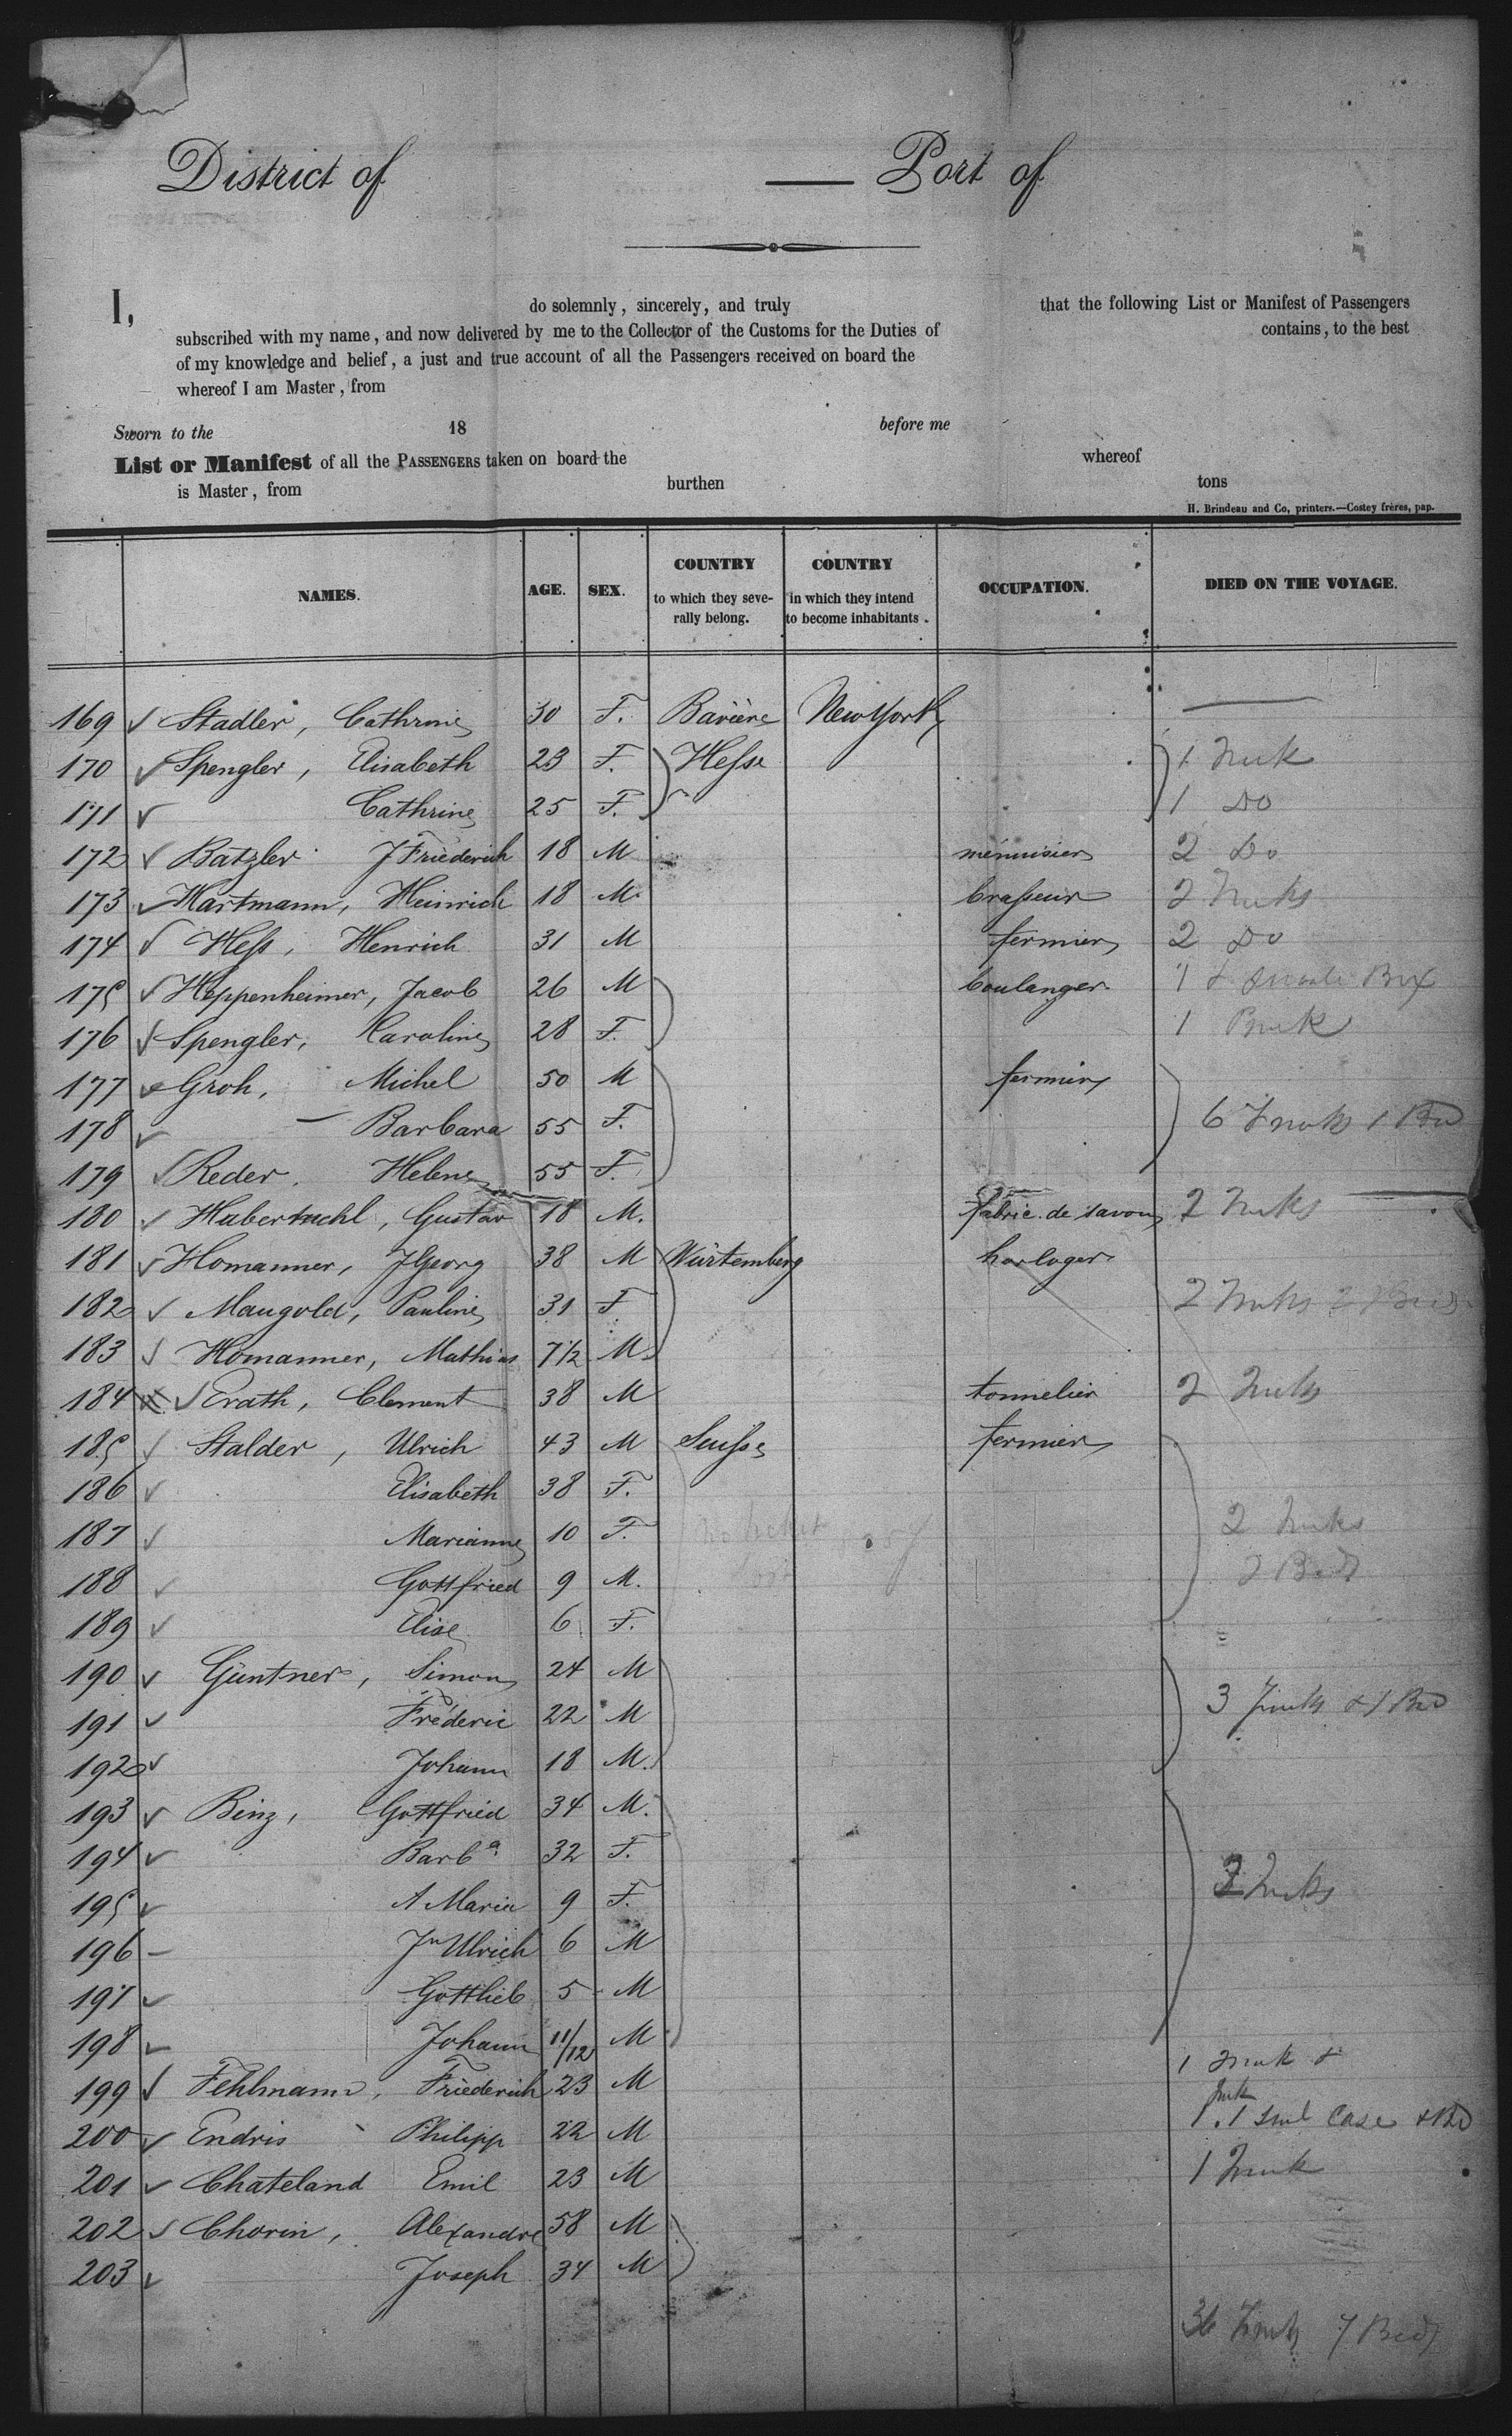 District of — Port of
I, do solemnly, sincerely, and truly that the following List or Manifest of Passengers
subscribed with my name, and now delivered by me to the Collector of the Customs for the Duties of contains, to the best
of my knowledge and belief, a just and true account of all the Passengers received on board the
whereof I am Master, from
Sworn to the 18 before me
List or Manifest of all the PASSENGERS taken on board the whereof
is Master, from burthen tons
H. Brindeau and Co, printers.—Costey frères, pap.
NAMES. AGE. SEX. COUNTRY to which they severally belong. COUNTRY in which they intend to become inhabitants. OCCUPATION. DIED ON THE VOYAGE.
169 Stadler, Cathrine 30 F. Bavière New York —
170 Spengler, Elisabeth 23 F. Hesse 1 Trunk
171 Cathrine 25 F. 1 Do
172 Batzler J Friederich 18 M menuisier 2 Do
173 Hartmann, Heinrich 18 M. brasseur 2 Trunks
174 Hess, Henrich 31 M fermier 2 Do
175 Heppenheimer, Jacob 26 M boulanger 1 & Box
176 Spengler, Karoline 28 F. 1
177 Groh, Michel 50 M fermier
178 — Barbara 55 F. 6 Trunks 1 Bed
179 Reder. Helene 55 F.
180 Habertuchl, Gustav 18 M. fabric. de savon 2 Trunks
181 Homanner, J Georg 38 M Würtemberg horloger
182 Maugold, Pauline 31 F 2 Trunks 2 Beds
183 Homanner, Mathias 7 1/2 M.
184 Erath, Clement 38 M tonnelier 2 Trunks
185 Stalder, Ulrich 43 M Suisse fermier
186 Elisabeth 38 F.
187 Marianne 10 F. 2 Trunks
188 Gottfried 9 M. 2 Beds
189 Elise 6 F.
190 Güntner, Simon 24 M
191 Fréderic 22 M 3 Trunks & 1 Bed
192 Johann 18 M.
193 Binz, Gottfried 34 M.
194 Barbª 32 F.
195 A Maria 9 F. Trunks
196 — Jn Ulrich 6 M
197 Gottlieb 5 M
198 Johann 11/12 M
199 Fehlmann, Friederich 23 M 1 Trunk &
200 Endris Philipp 22 M 1 . 1 Case & Bed
201 Chateland Emil 23 M 1 Trunk
202 Chorin, Alexandre 58 M
203 Joseph 34 M
36 Trunks 7 Beds